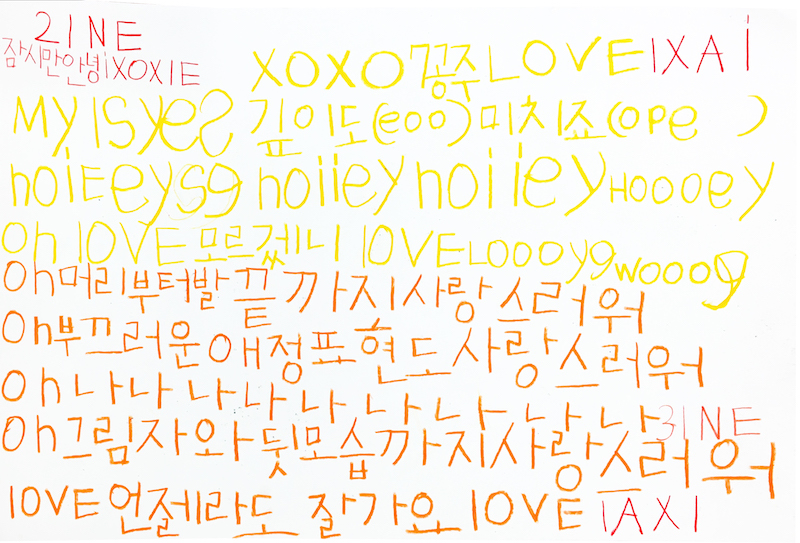 2INE
잠시만안녕iXOXIE
XOXO공주LOVE IXAi
My ISyes 깊이도(eoo)미치죠(ope )
noiEeysg noiiey noiiey HOOOey
Oh lOVE모르겠니 lOVELOOOygwooog
Oh머리부터발끝까지사랑스러워
Oh부끄러운애정표현도사랑스러워
Oh나나나나나나나나나
3INE
Oh그림자와뒷모습까지사랑스러워
lOVE언젤라도 잘가요lOVE TAXI